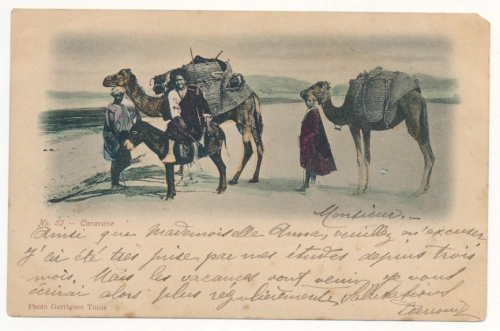 No. 62 - Caravane
Monsieur. -
Ainsi que Mademoiselle Anna, veuillez m'excuser
J'ai été très prise par mes études depuis trois
mois. Mais les vacances vont venir, je vous
écrirai alors plus régulièrement, Salutations
Photo Garrigues Tunis